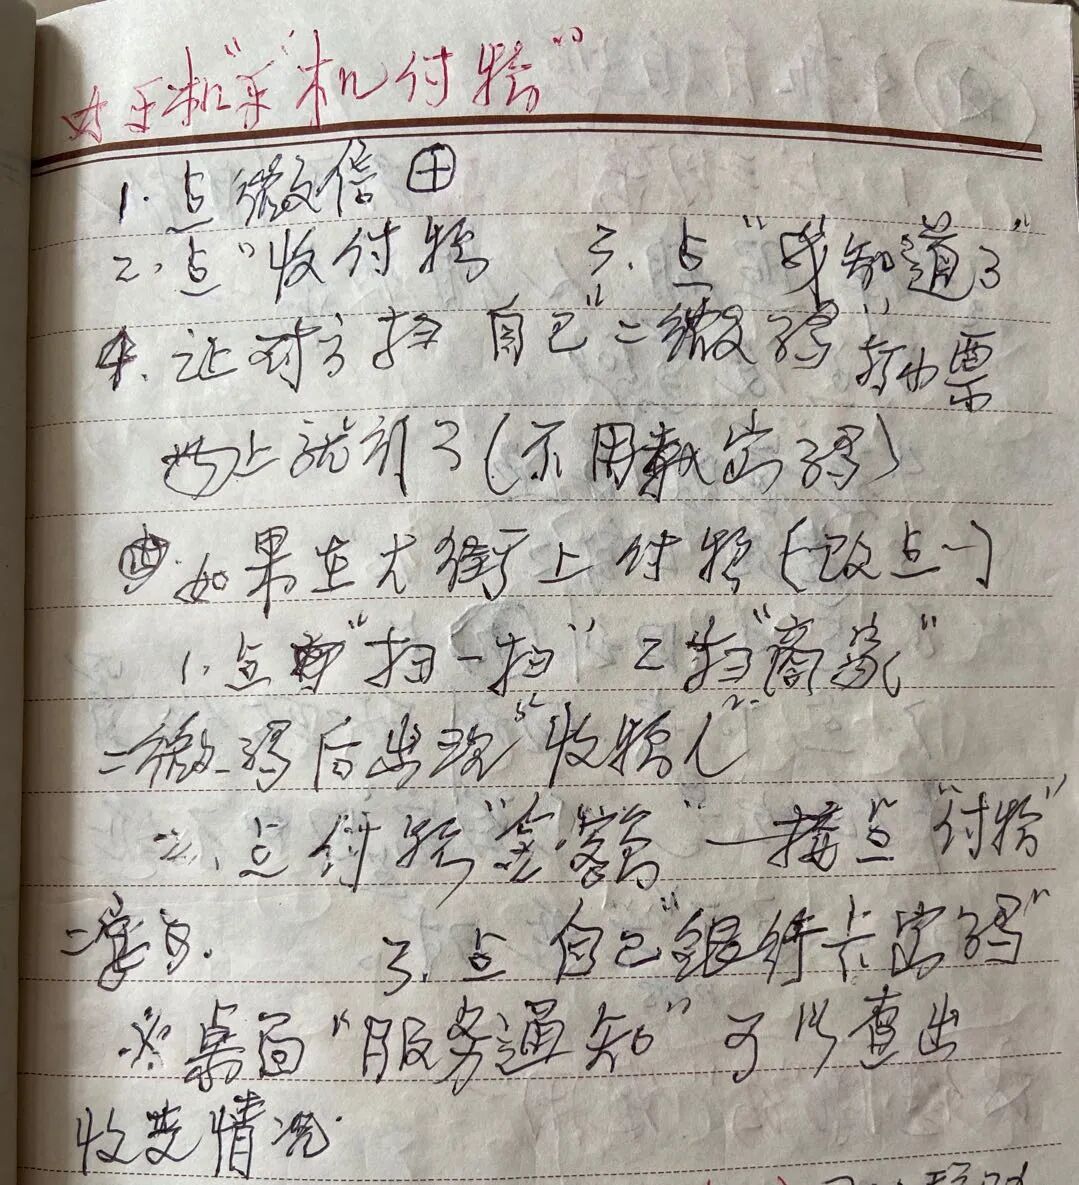 对手机"手"机付款"
1. 点微信⊕
2. 点"收付款 3. 点"我知道了"
4. 让对方扫 自己"二微码"打小票
马上就行了(不用輸密码)
如果在大街上付款(改点一)
1. 点"扫一扫" 2 扫"商家"
二微码后出现"收款人"
二. 点付款"金额"一接点"付款"
二字. 3. 点 自己"银行卡密码"
※桌面"服务通知"可以查出
收支情况.